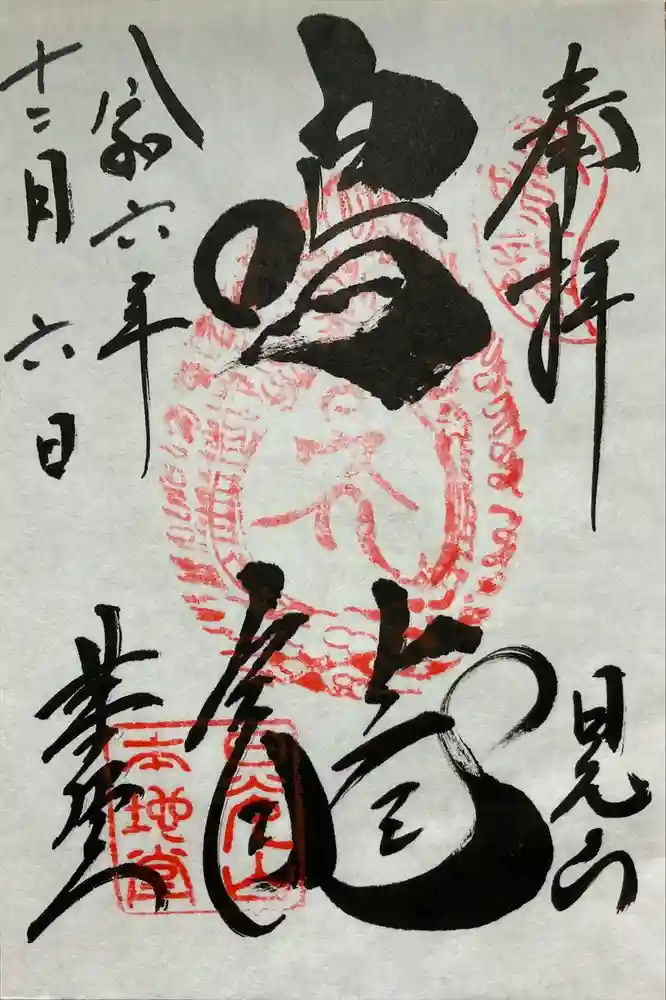 奉拝
日光山
鳴龍
令和六年
十二月六日
日光山
本地堂